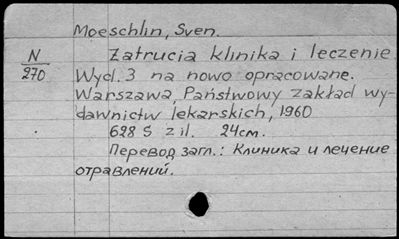 Moeschlin, Sven.
N
270
Zatrucia klinika i leczenie.
Wyd. 3 na nowo opracowane.
Warszawa, Państwowy zakład wy-
dawnictw lekarskich, 1960
628 S z il. 24см.
Перевод загл.: Клиника и лечение
отравлений.